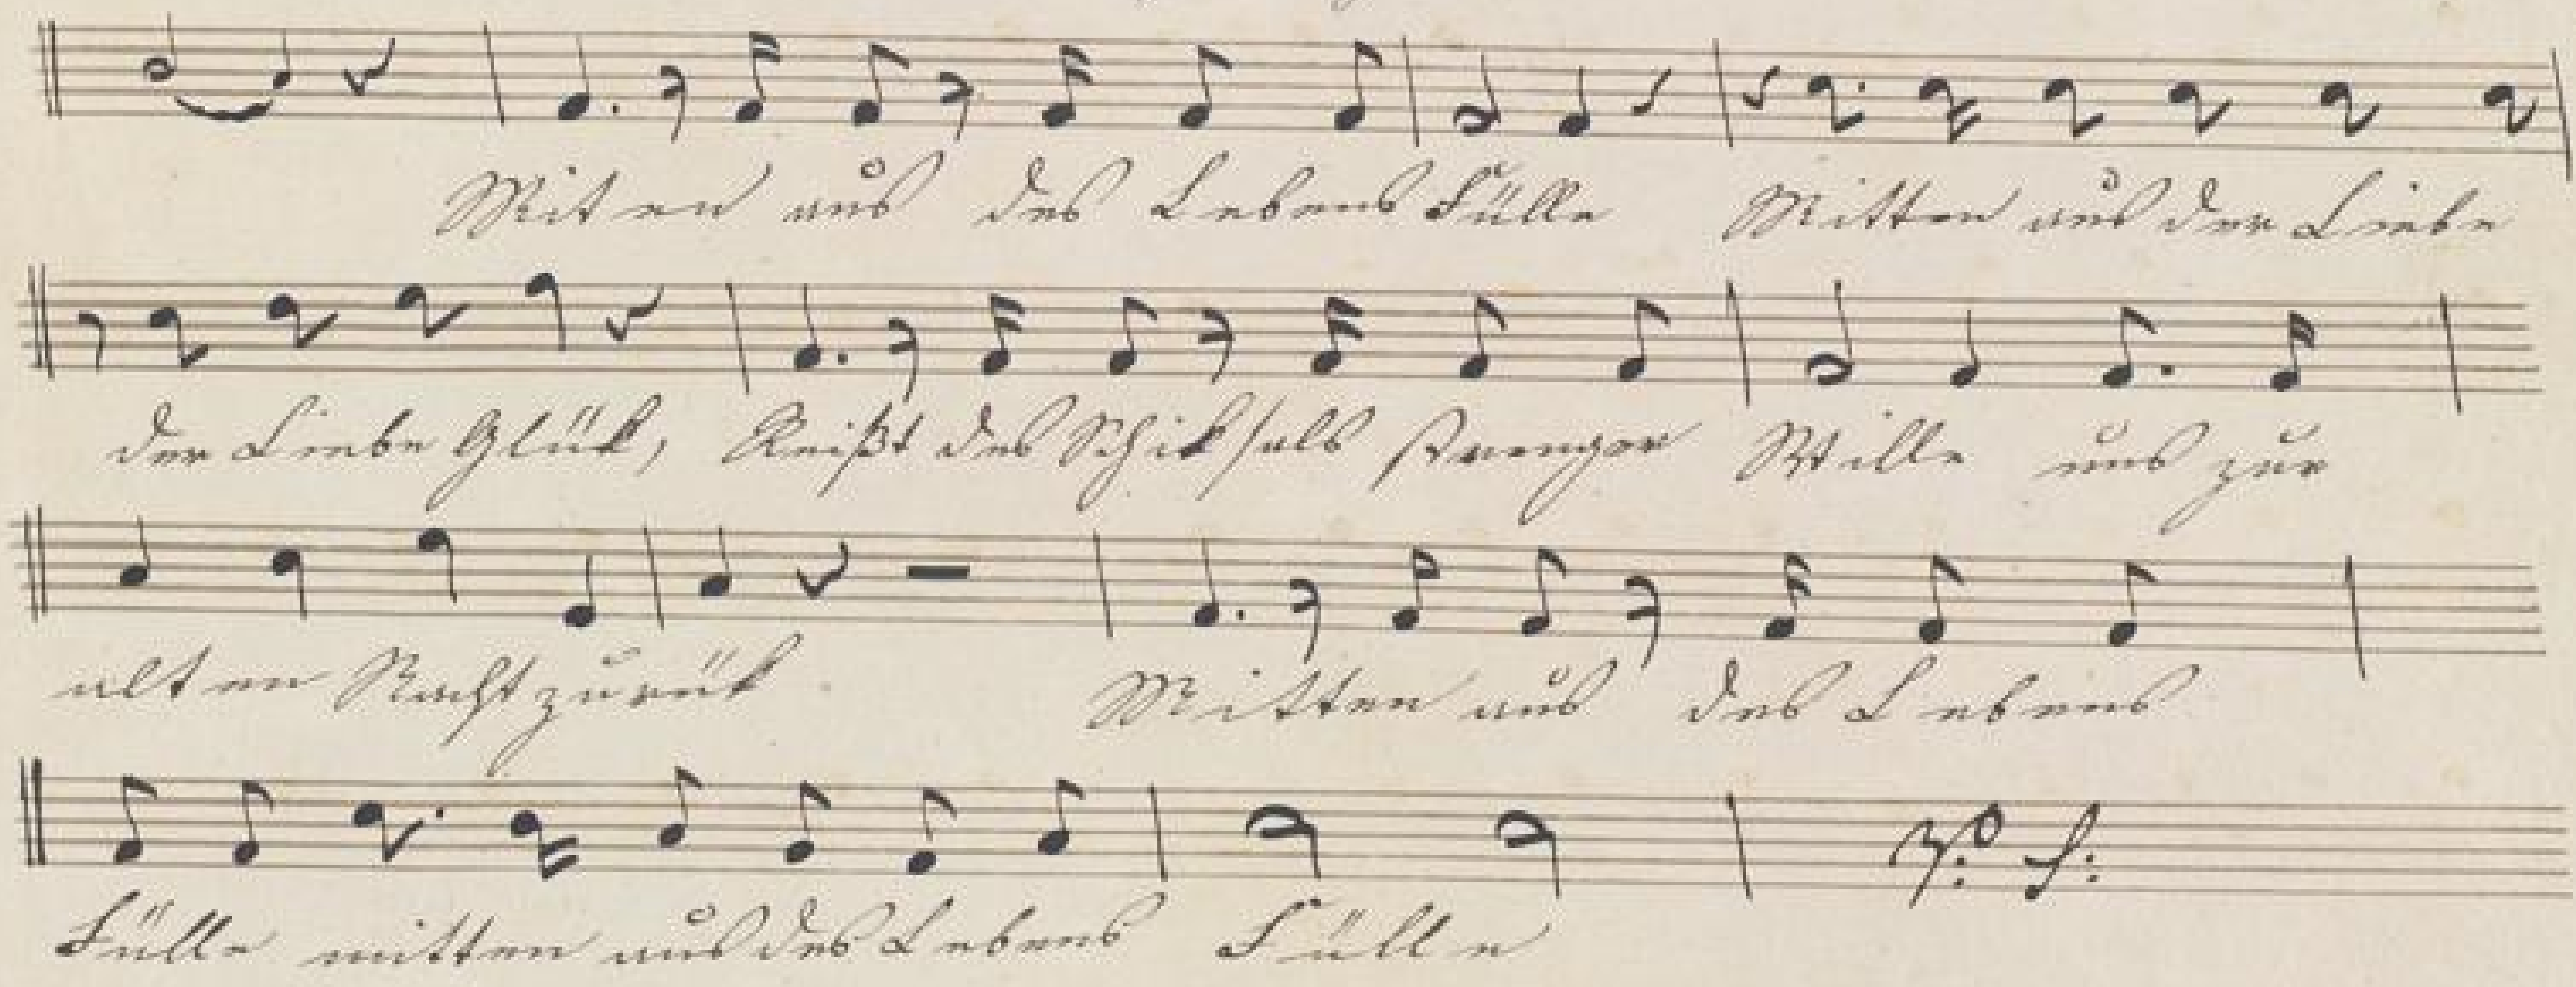 Miten aus des Lebens Fülle Mitten aus der Liebe
der Liebe Glük, Reißt des Schiksals strenger Wille uns zur
alten Nacht zurük Mitten aus des Lebens
Fülle mitten aus des Lebens Fülle